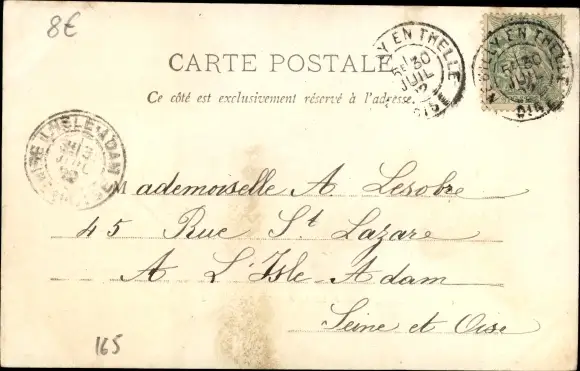 8€
CARTE POSTALE
Ce côté est exclusivement réservé à l'adresse.
LLY EN THELLE
30
JUIL
02
OISE
LLY EN THELLE
30
L'ISLE-ADAM
Mademoiselle A. Lesobre
45 Rue St Lazare
A L'Isle-Adam
Seine et Oise
165